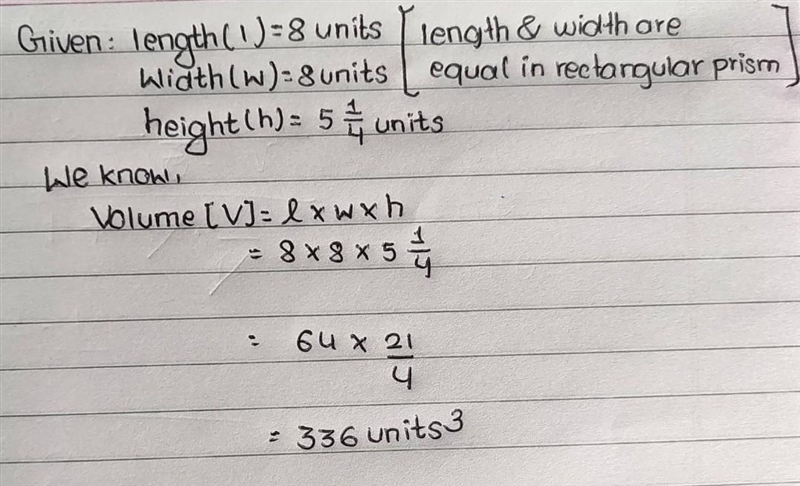 Given: length(l)=8 units [length & width are
Width(w)=8units equal in rectangular prism]
height(h)= 5 1/4 units
We know,
Volume [V]= l x w x h
= 8 x 8 x 5 1/4
= 64 x 21/4
= 336 units³